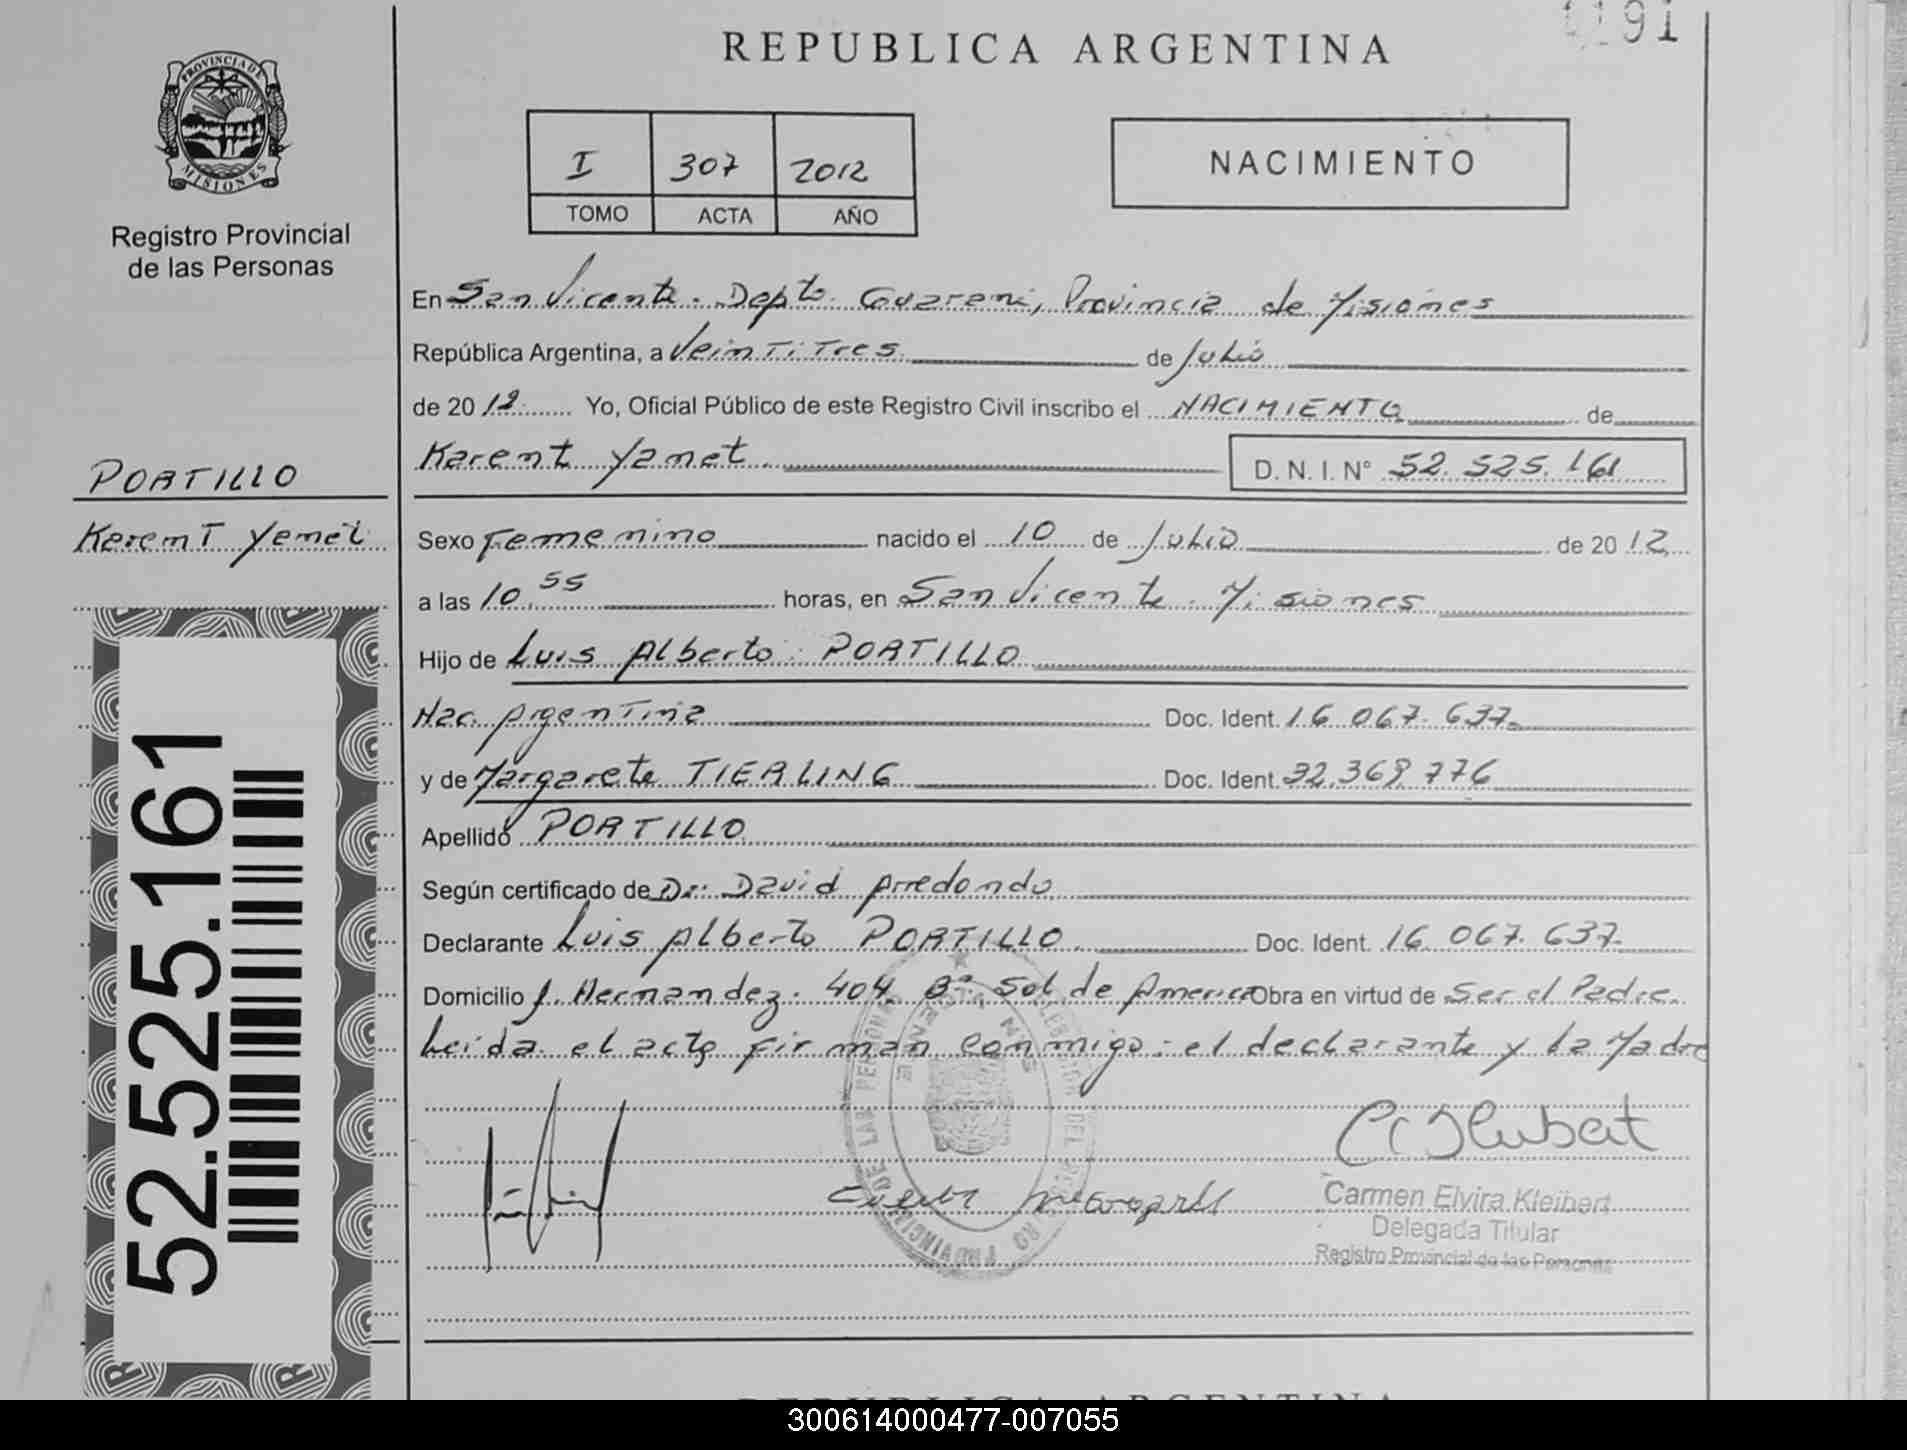 0191
REPUBLICA ARGENTINA
PROVINCIA DE
MISIONES
Registro Provincial
de las Personas
I 307 2012
TOMO ACTA AÑO
NACIMIENTO
En San Vicente. Depto. Guarani, Provincia de Misiones
República Argentina, a Veintitres de Julio
de 2012 Yo, Oficial Público de este Registro Civil inscribo el NACIMIENTO de
Karent Yanet D. N. I. N° 52.525.161
PORTILLO
Karent Yanet
Sexo Femenino nacido el 10 de Julio de 2012
a las 10,55 horas, en San Vicente. Misiones
Hijo de Luis Alberto PORTILLO
Nac. Argentina Doc. Ident. 16.067.637.
y de Margarete TIERLING Doc. Ident. 32.369.776
Apellido PORTILLO
Según certificado de Dr. David Arredondo
Declarante Luis Alberto PORTILLO. Doc. Ident. 16.067.637.
Domicilio J. Hernandez. 404. B°. Sol de America Obra en virtud de Ser el Padre.
Leida el acta firman conmigo: el declarante y la Madre
52.525.161
SAN VICENTE
Carmen Elvira Kleibert
Delegada Titular
Registro Provincial de las Personas
REPUBLICA ARGENTINA
300614000477-007055